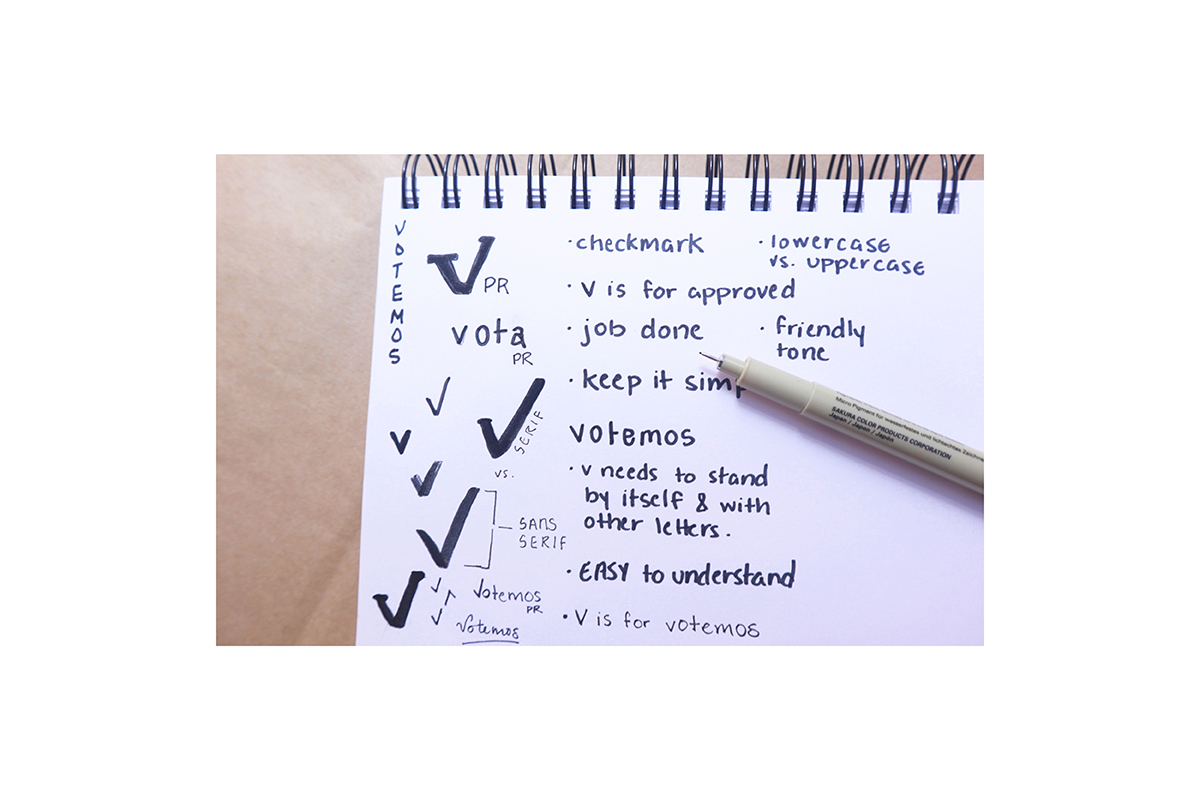 VOTEMOS
V PR
vota
PR
SERIF
vs.
SANS
SERIF
Votemos
PR
Votemos
· checkmark
· lowercase
vs. uppercase
· V is for approved
· job done
· friendly
tone
· keep it simp
votemos
· v needs to stand
by itself & with
other letters.
· EASY to understand
· V is for votemos
Micro Pigment für wasserfestes und lichtechtes Zeichne
SAKURA COLOR PRODUCTS CORPORATION
Japan / Japon / Japón